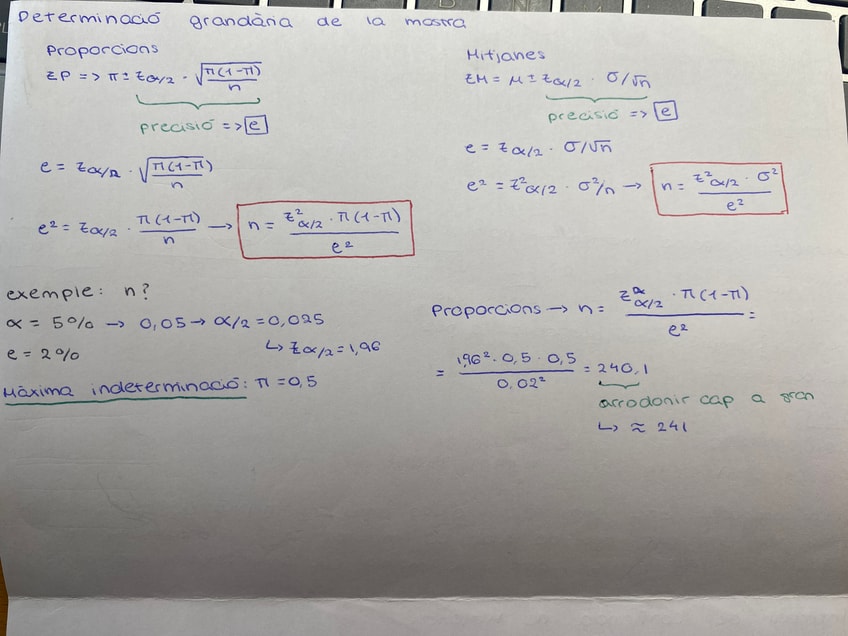 Determinació grandària de la mostra
Proporcions
EP => π ± Zα/2 · √(π(1-π)/n)
precisió => e
e = Zα/2 · √(π(1-π)/n)
e² = Zα/2 · π(1-π)/n → n = Z²α/2 · π(1-π)/e²
Mitjanes
EM = μ ± Zα/2 · σ/√n
precisió => e
e = Zα/2 · σ/√n
e² = Z²α/2 · σ²/n → n = Z²α/2 · σ²/e²
exemple: n?
α = 5% → 0,05 → α/2 = 0,025
e = 2% ↳ Zα/2 = 1,96
Màxima indeterminació: π = 0,5
Proporcions → n = Z²α/2 · π(1-π)/e² =
= 1,96² · 0,5 · 0,5/0,02² = 240,1
arrodonir cap a gran
↳ ≈ 241